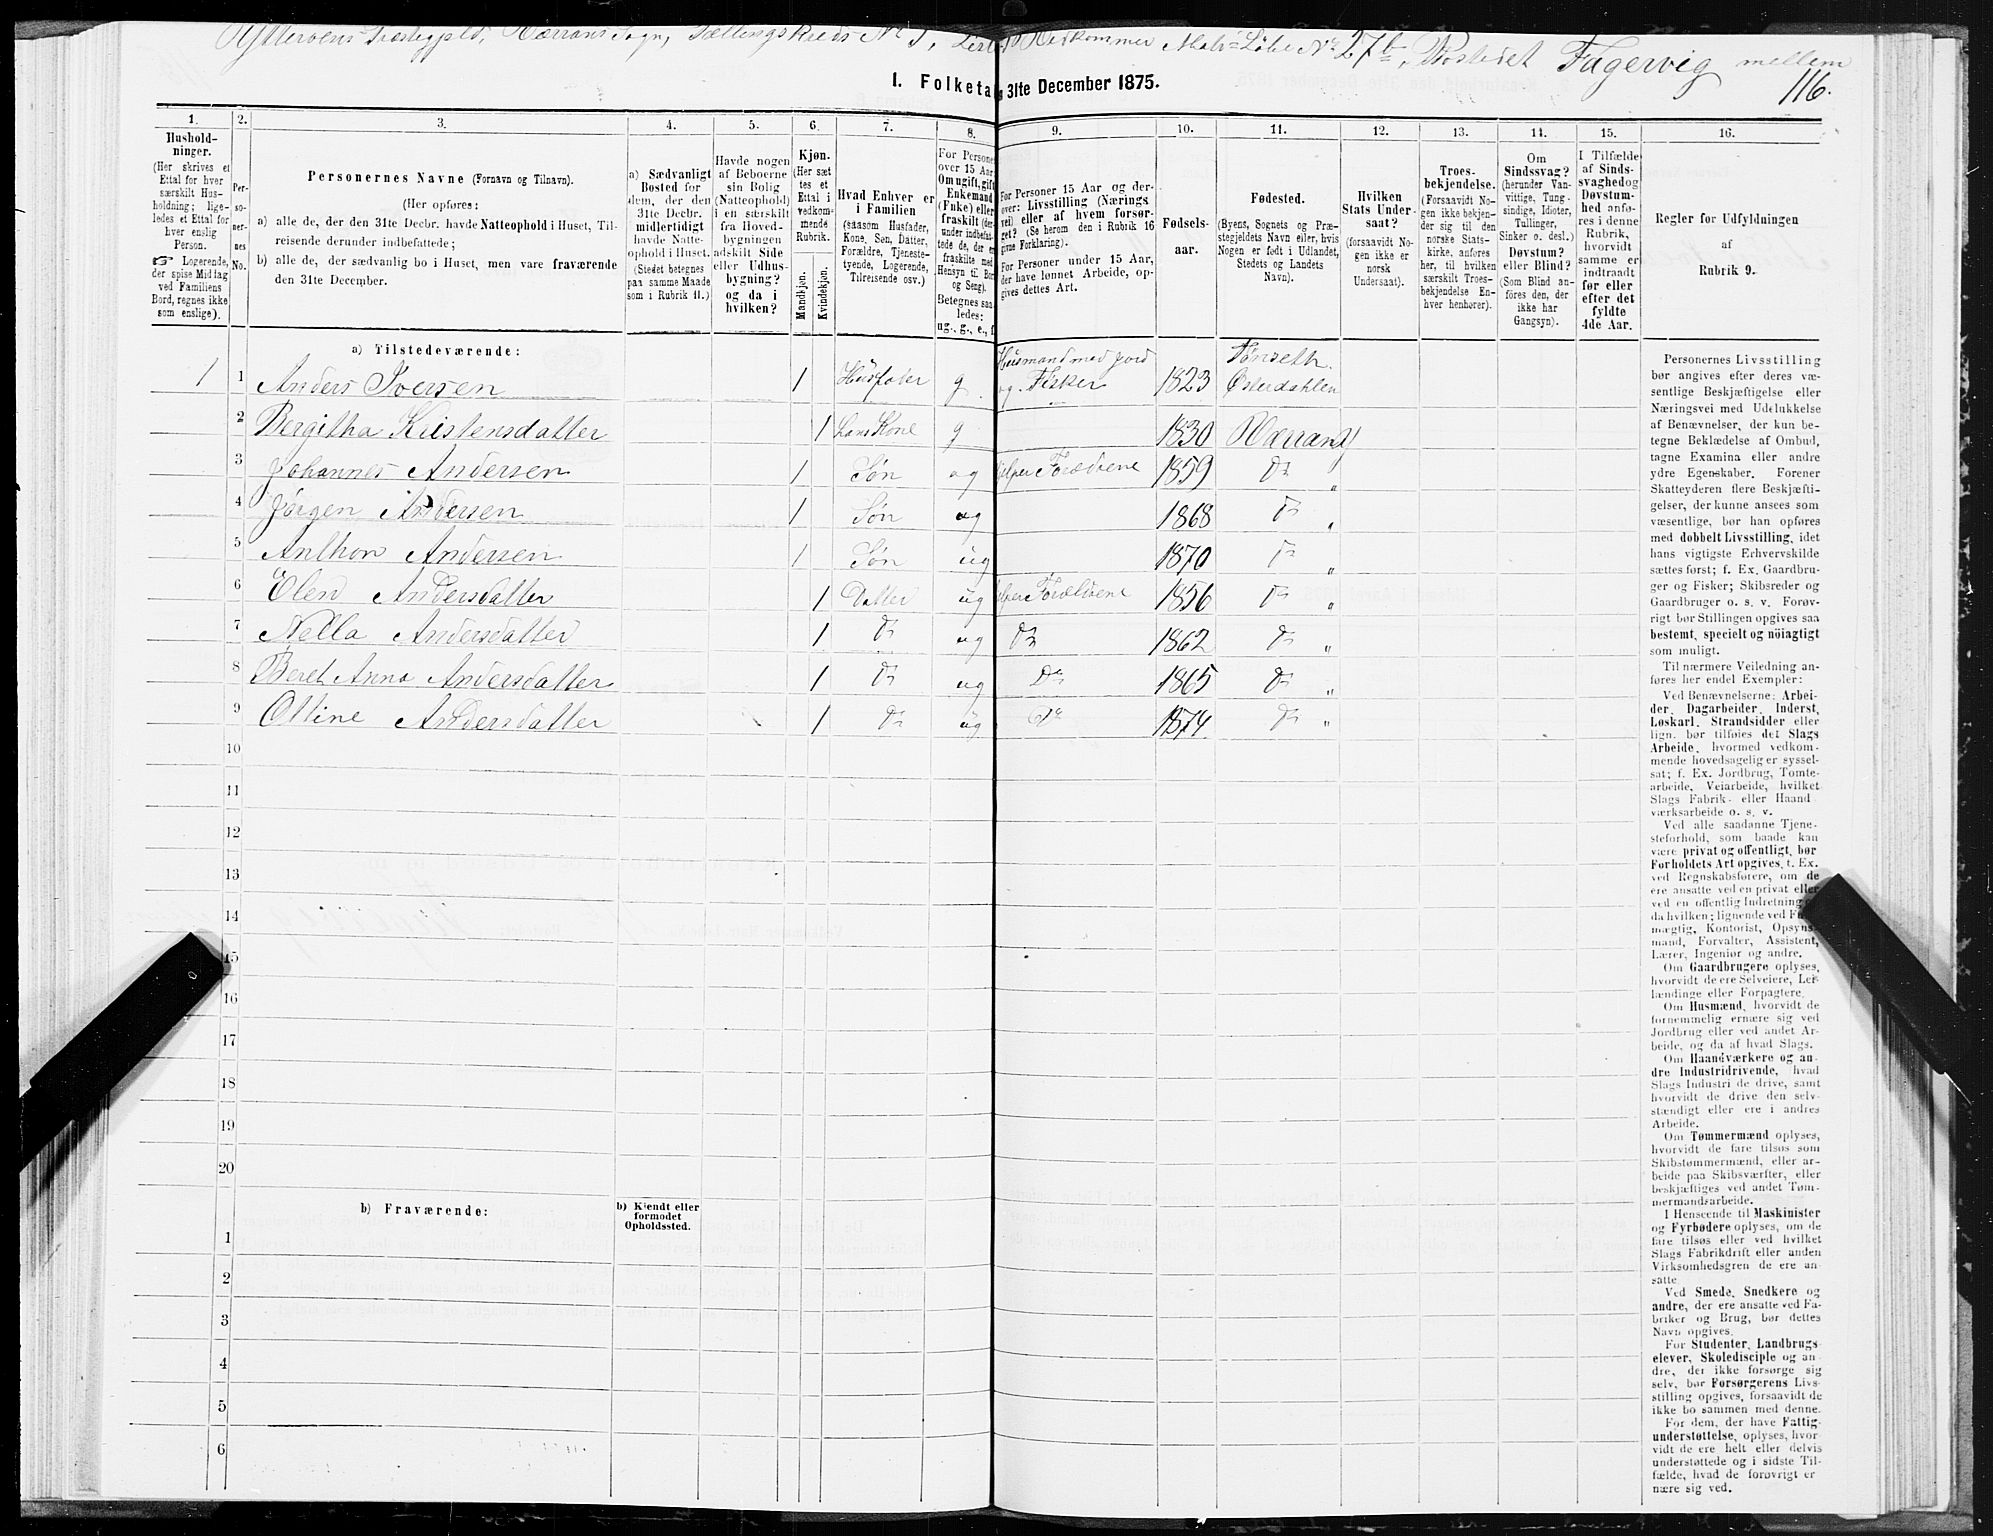 Ytterøens Præstegjeld, Værrans Sogn, Tællingskreds No 5, Vedkommer Matr: Løbe No 27b, Bostedet Fagervig mellem
116.
I. Folketa 31te December 1875.
1. 2. 3. 4. 5. 6. 7. 8. 9. 10. 11. 12. 13. 14. 15. 16.
Hushold-
ninger.
(Her skrives et
Ettal for hver
særskilt Hus-
holdning; lige-
ledes et Ettal for
hver enslig
Person.
☞ Logerende,
der spise Middag
ved Familiens
Bord, regnes ikke
som enslige).
Per-
so-
ner-
nes
No.
Personernes Navne (Fornavn og Tilnavn).
(Her opføres:
a) alle de, der den 31te Decbr. havde Natteophold i Huset, Til-
reisende derunder indbefattede;
b) alle de, der sædvanlig bo i Huset, men vare fraværende
den 31te December.
a) Sædvanligt
Bosted for
dem, der den
31te Decbr.
midlertidigt
havde Natte-
ophold i Huset.
(Stedet betegnes
paa samme Maade
som i Rubrik 11.)
Havde nogen
af Beboerne
sin Bolig
(Natteophold)
i en særskilt
fra Hoved-
bygningen
adskilt Side
eller Udhus-
bygning?
og da i
hvilken?
Kjøn.
(Her sæt
tes et
Ettal i
vedkom-
mende
Rubrik.
Mandkjøn.
Kvindekjøn.
Hvad Enhver er
i Familien
(saasom Husfader,
Kone, Søn, Datter,
Forældre, Tjeneste-
tyende, Logerende,
Tilreisende osv.)
For Persone
over 15 Aar
Om ugift, gift
Enkemand
(Enke) eller
fraskilt (der-
under indbefat-
tede de, der er
fraskilte med
Hensyn til Bor
og Seng).
Betegnes saa
ledes:
ug., g., e., f.
For Personer 15 Aar og der-
over: Livsstilling (Nærings
vei) eller af hvem forsør-
get? (Se herom den i Rubrik 16
givne Forklaring).
For Personer under 15 Aar,
der have lønnet Arbeide, op-
gives dettes Art.
Fødsels-
aar.
Fødested.
(Byens, Sognets og Præ-
stegjeldets Navn eller, hvis
Nogen er født i Udlandet,
Stedets og Landets
Navn).
Hvilken
Stats Under-
saat?
(forsaavidt No-
gen ikke er
norsk
Undersaat).
Troes-
bekjendelse.
(Forsaavidt No-
gen ikke bekjen-
der sig til den
norske Stats-
kirke, anføres
her, til hvilken
særskilt Troes-
bekjendelse En-
hver henhører).
Om
Sindssvag?
(herunder Van-
vittige, Tung-
sindige, Idioter,
Tullinger,
Sinker o. desl.)
Døvstum?
eller Blind?
(Som Blind an-
føres den, der
ikke har
Gangsyn).
I Tilfælde
af Sinds-
svaghed og
Døvstum-
hed anfø-
res i denne
Rubrik,
hvorvidt
samme er
indtraadt
før eller
efter det
fyldte
4de Aar.
Regler for Udfyldningen
af
Rubrik 9.
a) Tilstedeværende:
1 1 Anders Iversen 1 Husfader g. Husmand med Jord og Fisker 1823 Tønseth. Østerdahlen
2 Bergitha Kristensdatter 1 hans Kone g 1830 Værrans
3 Johannes Andersen 1 Søn ug hjelper Forældrene 1859 Do "
4 Jørgen Andersen 1 Søn ug 1868 Do "
5 Anthon Andersen 1 Søn ug 1870 Do "
6 Elen Andersdatter 1 Datter ug hjelper Forældrene 1856 Do "
7 Nella Andersdatter 1 Do ug Do 1862 Do "
8 Beret Anna Andersdatter 1 Do ug Do 1865 Do "
9 Oltine Andersdatter 1 Do ug Do 1874. Do "
10
11
12
13
14
15
16
17
18
19
20
b) Fraværende:
b) Kjendt eller
formodet
Opholdssted.
1
2
3
4
5
6
Personernes Livsstilling
bør angives efter deres væ-
sentlige Beskjæftigelse eller
Næringsvei med Udelukkelse
af Benævnelser, der kun be-
tegne Beklædelse af Ombud,
tagne Examina eller andre
ydre Egenskaber. Forener
Skatteyderen flere Beskjæfti-
gelser, der kunne ansees som
væsentlige, bør han opføres
med dobbelt Livsstilling, idet
hans vigtigste Erhvervskilde
sættes først; f. Ex. Gaardbru-
ger og Fisker; Skibsreder og
Gaardbruger o. s. v. Forøv-
rigt bør Stillingen opgives saa
bestemt, specielt og nöiagtigt
som muligt.
Til nærmere Veiledning an-
føres her endel Exempler:
Ved Benævnelserne: Arbei-
der, Dagarbeider, Inderst,
Løskarl, Strandsidder eller
lign. bør tilføies det Slags
Arbeide, hvormed vedkom-
mende hovedsagelig er syssel-
sat; f. Ex. Jordbrug, Tomte-
arbeide, Veiarbeide, hvilket
Slags Fabrik- eller Haand
værksarbeide o. s. v.
Ved alle saadanne Tjene-
steforhold, som baade kan
være privat og offentligt, bør
Forholdets Art opgives, t. Ex.
ved Regnskabsførere, om de
ere ansatte ved en privat eller
ved en offentlig Indretning
da hvilken; lignende ved Fuld-
mægtig, Kontorist, Opsyns-
mand, Forvalter, Assistent,
Lærer, Ingeniør og andre.
Om Gaardbrugere oplyses,
hvorvidt de ere Selveiere, Lei-
lændinge eller Forpagtere.
Om Husmænd, hvorvidt de
fornemmelig ernære sig ved
Jordbrug eller ved andet Ar-
beide, og da af hvad Slags.
Om Haandværkere og an-
dre Industridrivende, hvad
Slags Industri de drive, samt
hvorvidt de drive den selv-
stændigt eller ere i andres
Arbeide.
Om Tømmermænd oplyses,
hvorvidt de fare tilsøs som
Skibstømmermænd, eller ar-
beide paa Skibsværfter, eller
beskjæftiges ved andet Tøm-
mermandsarbeide.
I Henseende til Maskinister
og Fyrbødere oplyses, om de
fare tilsøs eller ved hvilket
Slags Fabrikdrift eller anden
Virksomhedsgren de ere an-
satte.
Ved Smede, Snedkere og
andre, der ere ansatte ved Fa-
briker og Brug, bør dettes
Navn opgives.
For Studenter, Landbrugs-
elever, Skoledisciple og an-
dre, der ikke forsørge sig
selv, bør Forsørgerens Livs-
stilling opgives, forsaavidt de
ikke bo sammen med denne.
For dem, der have Fattig-
understøttelse, oplyses, hvor-
vidt de ere helt eller delvis
understøttede og i sidste Til-
fælde, hvad de forøvrigt er
nære sig ved.